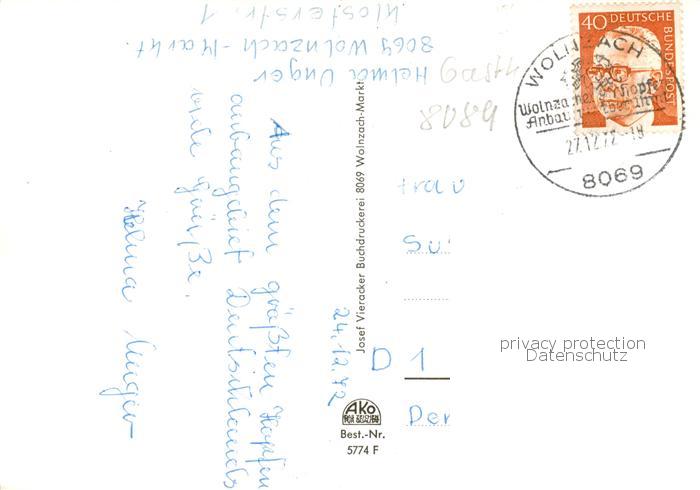 Helma Unger
8069 Wolnzach-Markt.
Klosterstr. 1
24.12.72
Aus dem größten Hopfen
anbaugebiet Deutschlands
viele Grüße.
Helma Unger
Josef Vieracker Buchdruckerei 8069 Wolnzach-Markt
AKO
Best.-Nr.
5774 F
40 DEUTSCHE
BUNDESPOST
WOLNZACH
Wolnzacher Hopfen
27.12.72-18
8069
Frau
D 1
privacy protection
Datenschutz